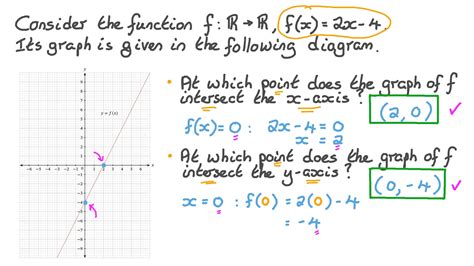 Consider the function f: ℝ → ℝ, f(x) = 2x - 4.
Its graph is given in the following diagram.
y = f(x)
• At which point does the graph of f
intersect the x-axis?
(2, 0) ✓
f(x) = 0 : 2x - 4 = 0
x = 2
• At which point does the graph of f
intersect the y-axis?
(0, -4) ✓
x = 0 : f(0) = 2(0) - 4
= -4